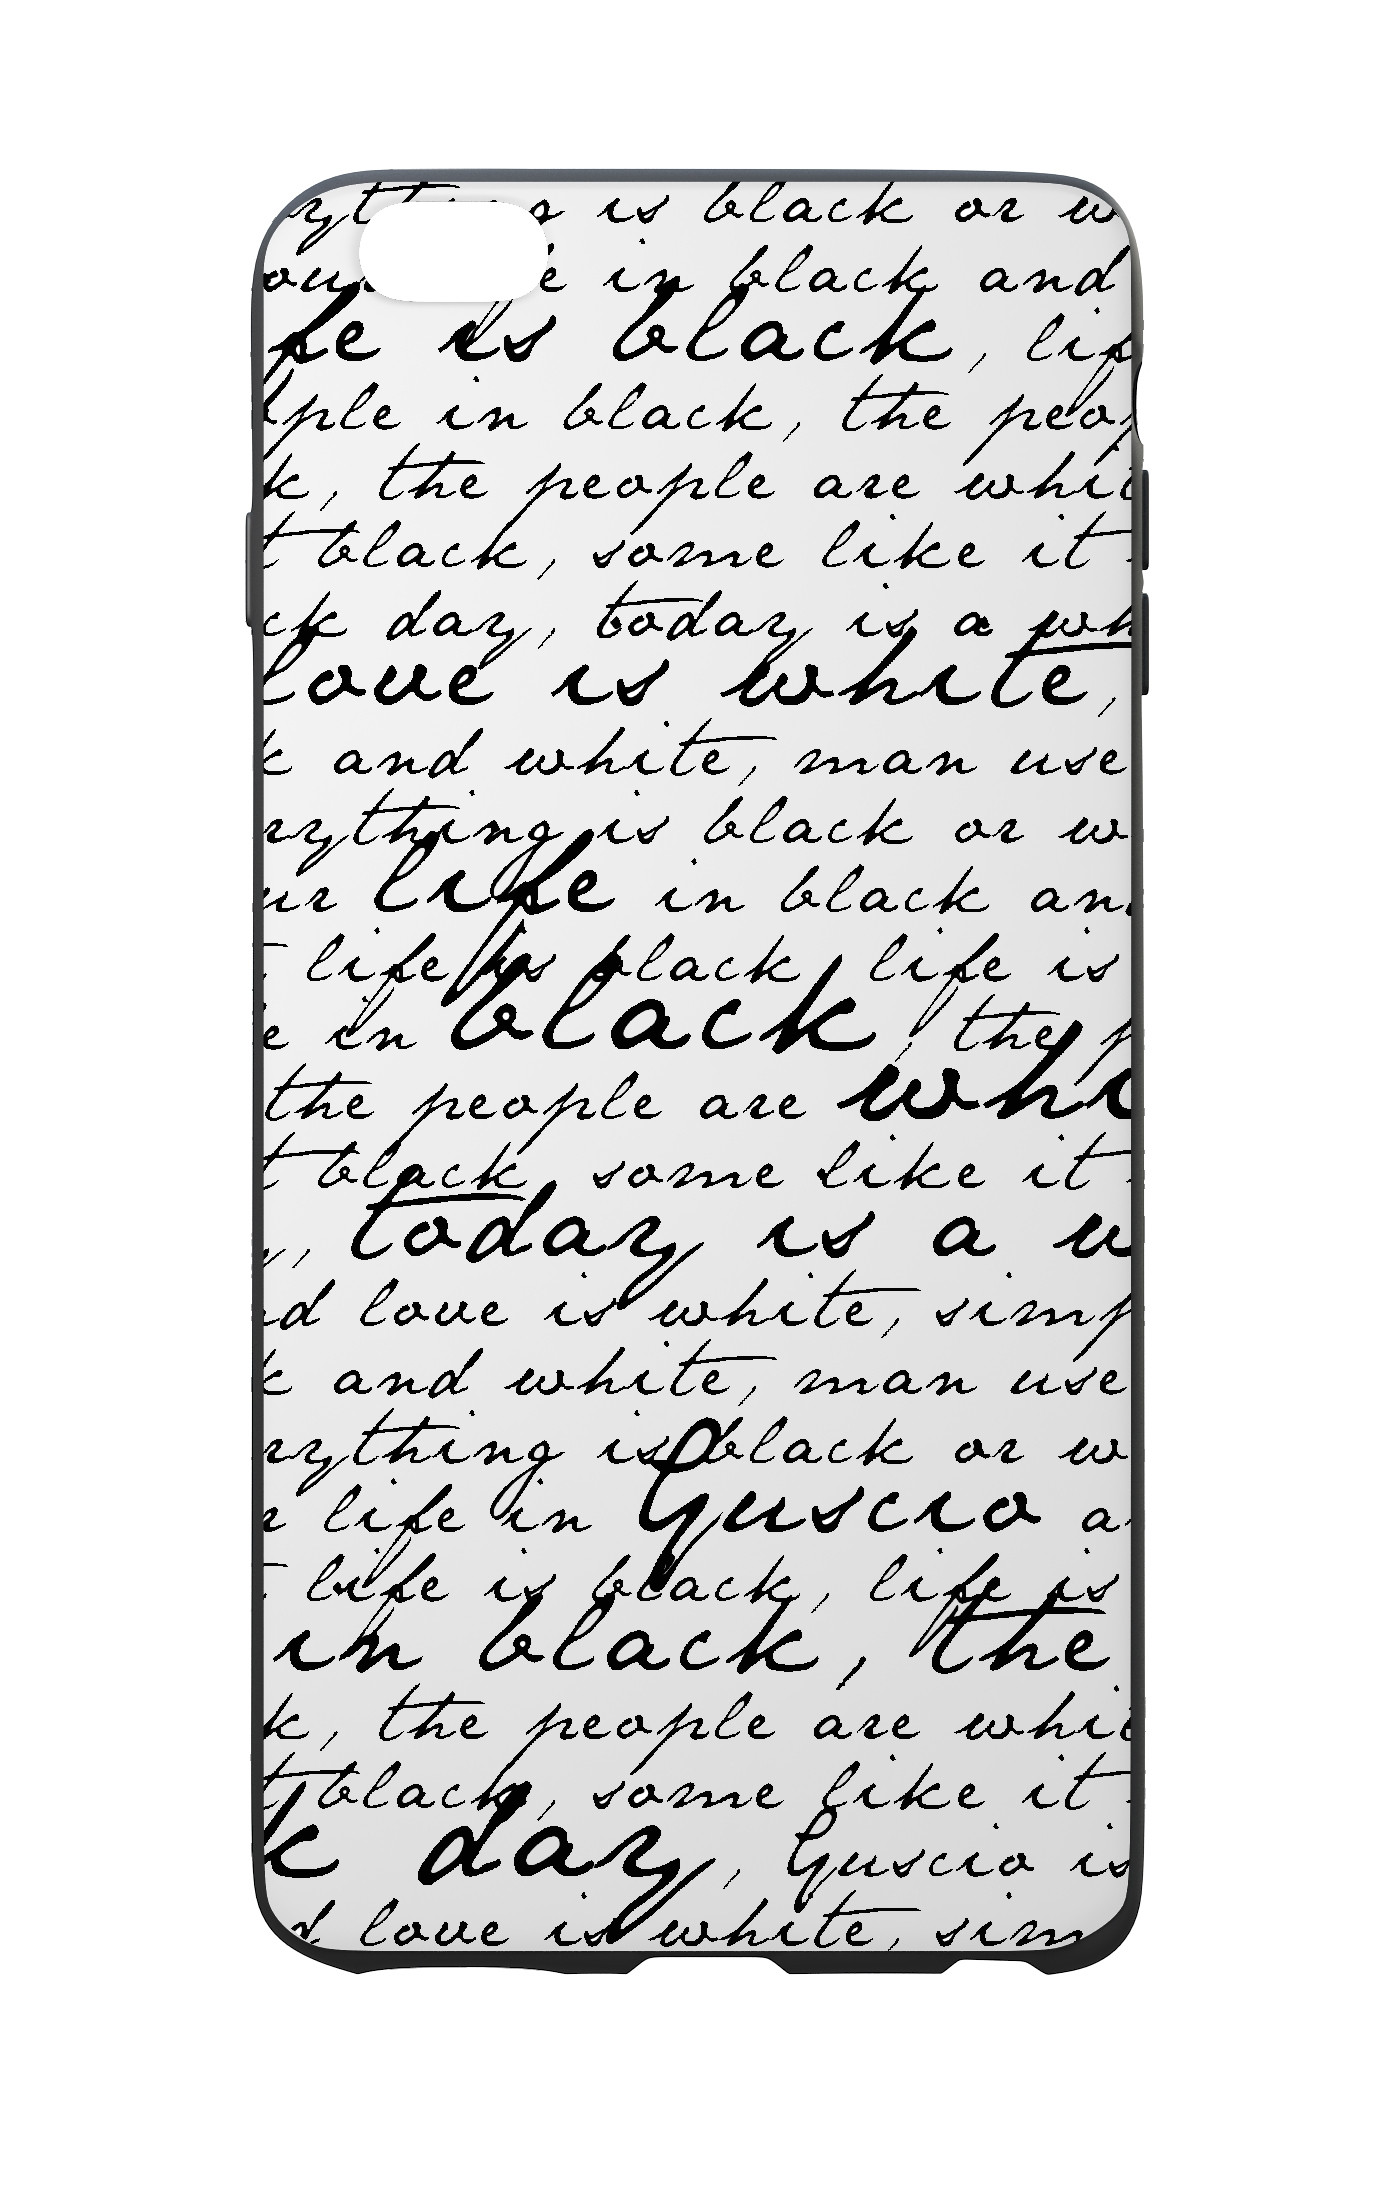 is black or w
in black and
fe is black, lif
ople in black, the peop
k, the people are whit
t black, some like it
ck day, today is a wh
love is white,
k and white, man use
rything is black or w
ur life in black an
life is black, life is
e in black, the p
the people are whi
t black, some like it
y, today is a w
nd love is white, simp
k and white, man use
rything is black or w
r life in Guscio a
life is black, life is
in black, the
k, the people are whit
t black, some like it
k day, Guscio is
d love is white, sim